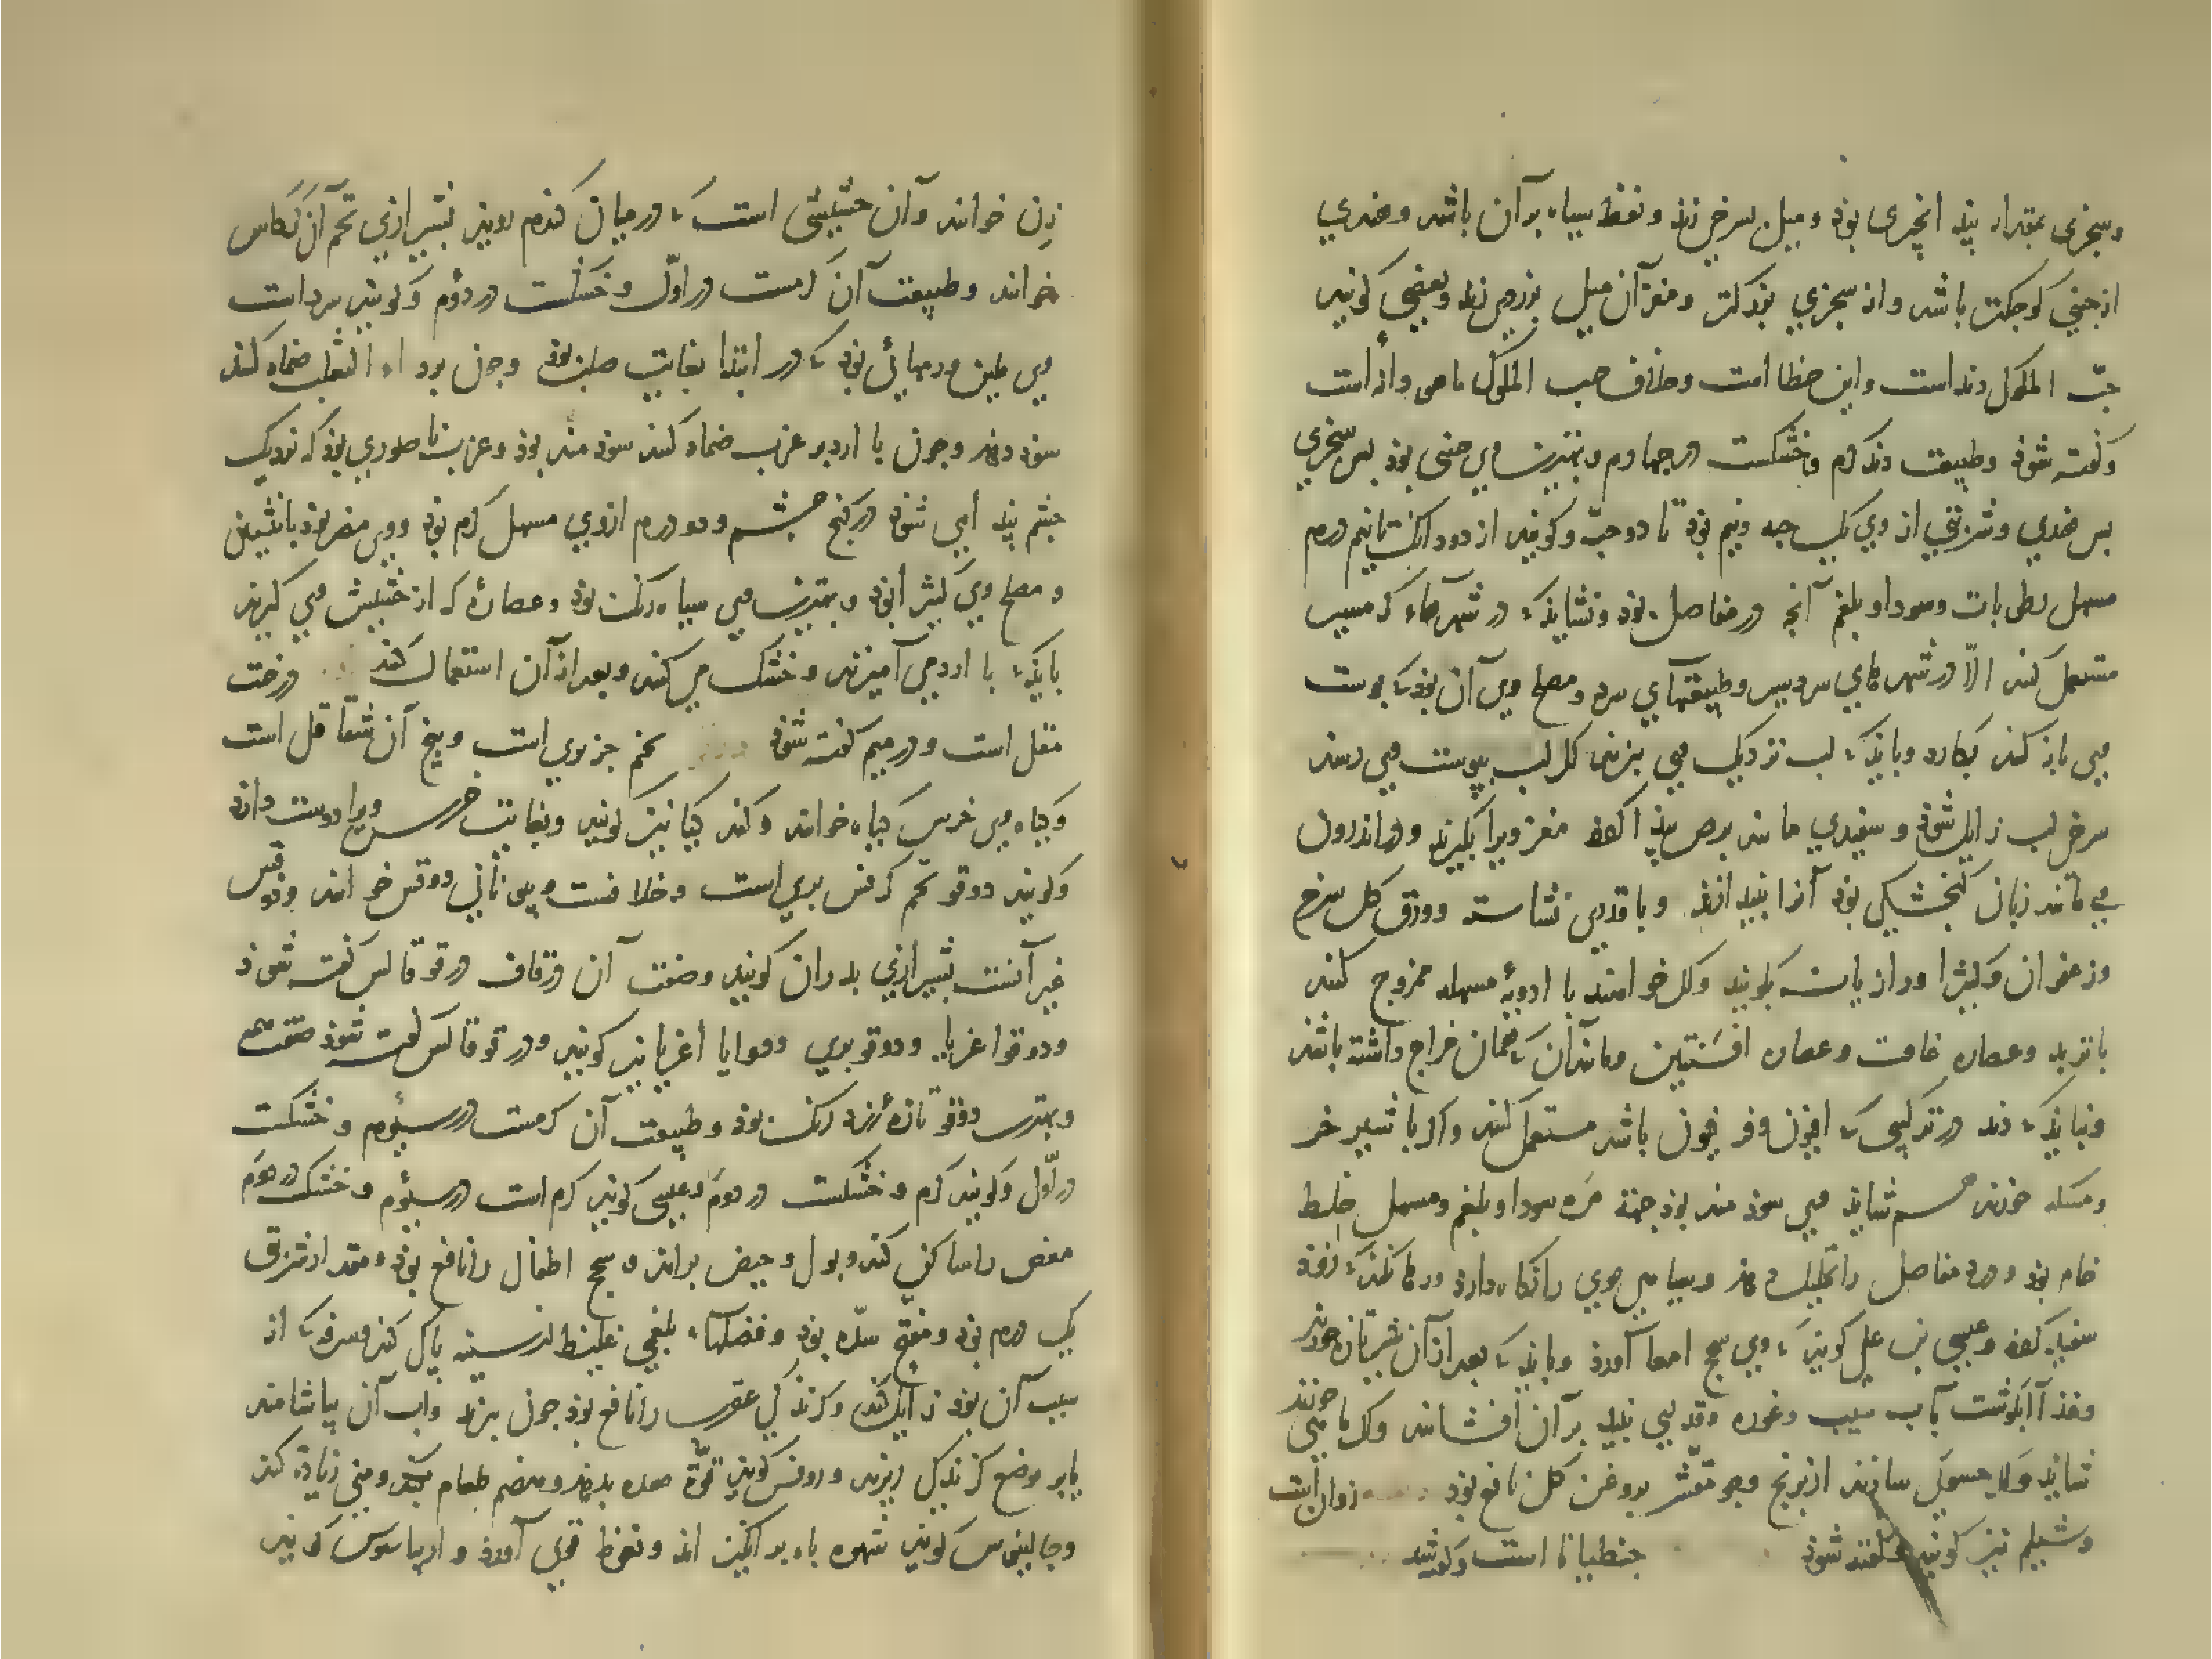 وسجزی بمقدار بید انجیری بوذ و میل بسرخی زند و نقط سیاه برآن باشد و هندی
از چینی کوجکتر باشد و از سجزی بزرکتر و مغز آن میل بزردی زند و بعضی کویند
حبّ الملوک دند است و این خطا است و خلاف حب الملوک ماهی دانه است
و کفته شوذ و طبیعت دند کرم و خشکست در جهارم و بهترین وی چینی بوذ بس سجزی
بس هندی و شربتی از وی یک حبه و نیم بوذ تا دو حبّ و کویند از دو دانک تا نیم درم
مسهل رطوبات و سودا و بلغم آنجه در مفاصل بوذ و نشایذ که در شهرهاء کرمسیر
مستعمل کنند الّا در شهرهای سردسیر و طبیعتهای سرد و مصلح وی آن بوذ که بوست
وی باز کنند بکارد و بایذ که لب نزدیک وی نبرند که اکر لب ببوست وی رسد
سرخی لب زایل شوذ و سفیدی مانند برص بیذا کند مغز ویرا بکیرند و در اندرون
وی مانند زبان کنجشکی بوذ آنرا بیندازند و با قدری نشاسته و ورق کل سرخ
و زعفران و کثیرا و رازیانه بکوبند و اکر خواهند با ادویهٔ مسهله ممزوج کنند
با تربد و عصاره غافت و عصاره افسنتین و مانند آن که همان مزاج داشته باشند
و نبایذ که دند در ترکیبی که افیون و فرفیون باشد مستعمل کنند و اکر با شیر خر
و مسکه خورند هم شایذ وی سوذ مند بوذ جهت مره سودا و بلغم و مسهل خلط
خام بوذ و درد مفاصل را تحلیل دهذ و سیاهی موی را نکاه دارد و رها نکند که زوذ
سفید کردد و عیسی بن علی کویند که وی سحج امعا آورد و بایذ که بعد از آن شیر تازه خورند
و غذا آبکوشت بآب سیب و غوره و قدری نبید بر آن افشانند و اکر با می خورند
شایذ و اکر حسوی سازند از برنج و جو مقشر بروغن کل نافع بوذ زوان است
و شیلم نیز کویند و کفته شوذ جنطیانا است و کوشد
زن خوانند و آن حشیشی است که در میان کندم رویذ بشیرازی تخم آنرا کاس
خوانند و طبیعت آن کرمست در اوّل و خشکست در دوّم و کویند سرد است
وی ملین ورمهائی بوذ که در ابتدا بغایت صلب بوذ و جون بر داء الثعلب ضماد کنند
سوذ دهد و جون با آرد بر غرب ضماد کنند سوذ مند بوذ و غرب ناصوری بوذ که نزدیک
جشم بیذا می شوذ در کنج جشم و دو درم از وی مسهل کرم بوذ و وی مضر بوذ بانثیین
و مصلح وی کثیرا بوذ و بهترین وی سیاه رنک بوذ و عصارهٔ که از حشیش وی کیرند
بایذ که با آرد می آمیزند و خشک می کنند و بعد از آن استعمال کنند درخت
مقل است و در میم کفته شوذ تخم جزر بری است و بیخ آن شقاقل است
و کیاه وی خرس کیاه خوانند و کند کیا نیز کویند و بغایت خرس ویرا دوست دارد
و کویند دوقو تخم کرفس بری است و خلافست و بیونانی دوقس خوانند و ذوقس
غیر آنست بشیرازی بدران کویند و صفت آن در قاف در قوقالس کفته شوذ
و دوقوا غریا و دوقو بری و دوایا اغریا نیز کویند و در قوقالس کفته شوذ صفتش
و بهترین دوقو تازهٔ زرد رنک بوذ و طبیعت آن کرمست در سیوم و خشکست
در اوّل و کویند کرم و خشکست در دوم و عیسی کویذ کرم است در سیوم و خشک در دوم
مغص را ساکن کند و بول و حیض براند و سحج اطفال را نافع بوذ و مقدار شربتی
یک درم بوذ و مفتح سدّه بوذ و فضلهاء بلغمی غلیظ از سینه پاک کند و سرفه که از
سبب آن بوذ زایل کند و کزندکی عقرب را نافع بوذ جون بزند و آب آن بیاشامند
یا بر موضع کزندکی ریزند و روفس کویذ قوّة معده بدهد و هضم طعام بکند و منی زیاده کند
و جالینوس کویذ شهوه باه بر انکیزاند و نعوظ قوی آورد و اریباسوس کویند